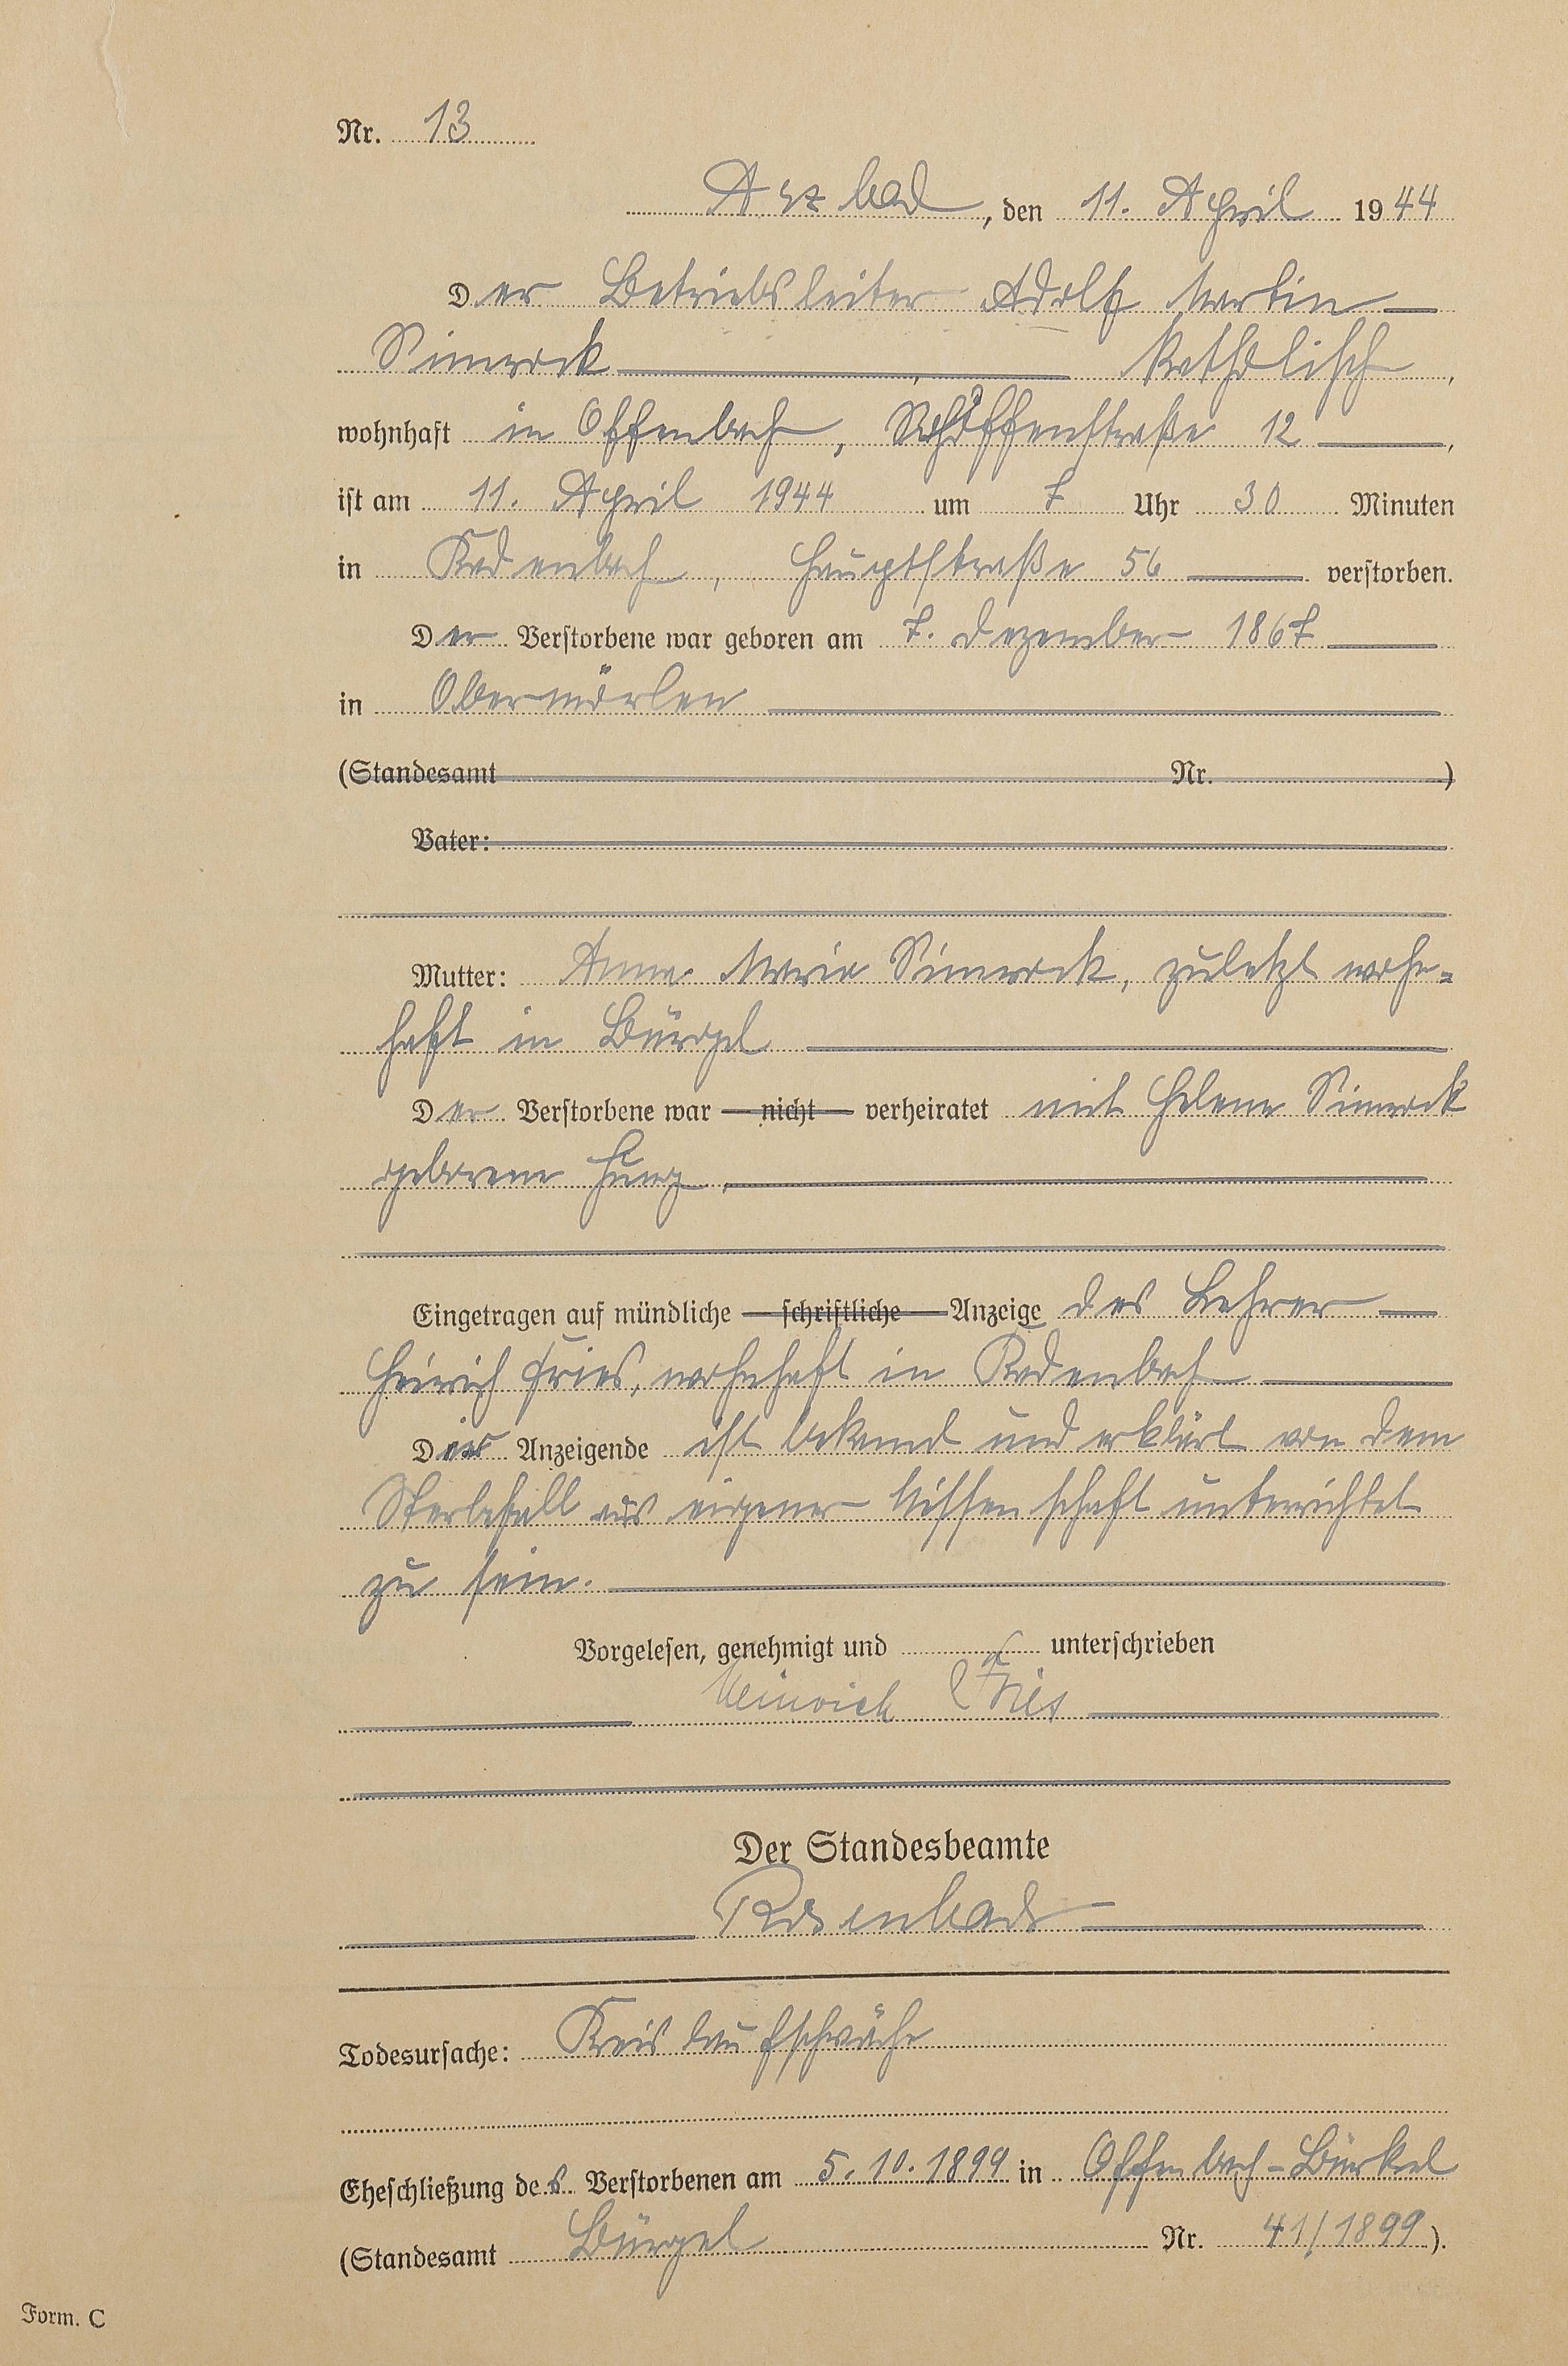 Nr. 13
Arzbad, den 11. April 1944
Der Betriebsleiter Adolf Martin
Simrock katholisch,
wohnhaft in Offenbach, Schöffenstraße 12,
ist am 11. April 1944 um 7 Uhr 30 Minuten
in Kadenbach, Hauptstraße 56 verstorben.
Der Verstorbene war geboren am 7. Dezember 1867
in Obermörlen
(Standesamt Nr. )
Vater:
Mutter: Anna Maria Simrock, zuletzt wohn=
haft in Bürgel
Der Verstorbene war nicht verheiratet mit Helene Simrock
geborene
Eingetragen auf mündliche schriftliche Anzeige des Lehrer
Heinrich Fries, wohnhaft in Kadenbach
Der Anzeigende ist bekannt und erklärt von dem
Sterbefall aus eigener Wissenschaft unterrichtet
zu sein.
Vorgelesen, genehmigt und unterschrieben
Heinrich Fries
Der Standesbeamte
Todesursache: Kreislaufschwäche
Eheschließung des Verstorbenen am 5.10.1899 in Offenbach-Bürkel
(Standesamt Bürgel Nr. 41/1899).
Form. C